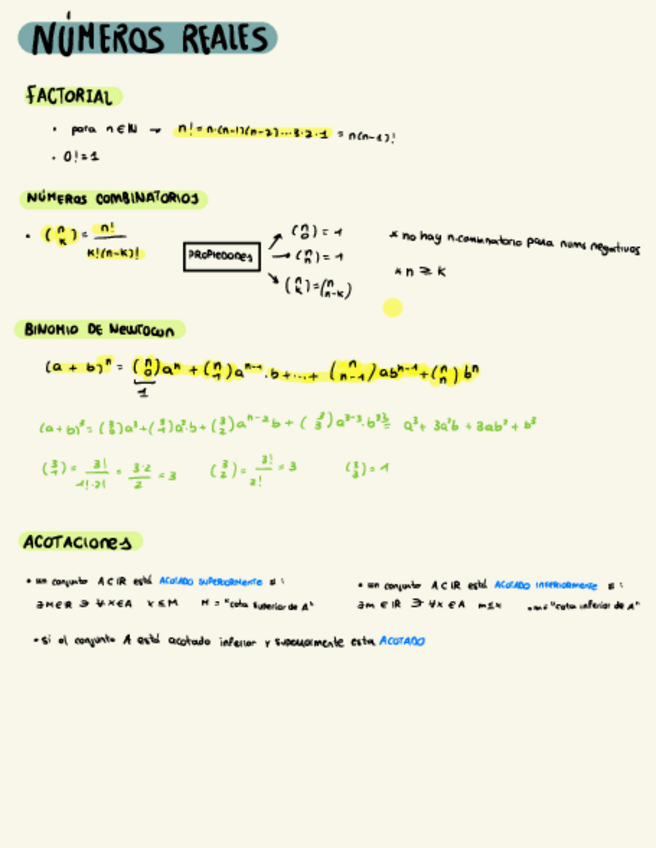 NÚMEROS REALES
FACTORIAL
· para n ∈ ℕ → n! = n·(n-1)(n-2)...3·2·1 = n(n-1)!
· 0! = 1
NÚMEROS COMBINATORIOS
· (n k) = n! / k!(n-k)!
PROPIEDADES
(n 0) = 1
(n n) = 1
(n k) = (n n-k)
* no hay n.combinatorio para nums negativos
* n ≥ k
BINOMIO DE
(a + b)ⁿ = (n 0)aⁿ + (n 1)aⁿ⁻¹·b + ... + (n n-1)abⁿ⁻¹ + (n n)bⁿ
1
(a+b)³ = (3 0)a³ + (3 1)a²·b + (3 2)aⁿ⁻²b + (3 3)a³⁻³·b³ = a³ + 3a²b + 3ab² + b³
(3 1) = 3! / 1!·2! = 3·2 / 2 = 3 (3 2) = 3! / 2! = 3 (3 3) = 1
ACOTACIONES
• un conjunto A ⊂ ℝ está ACOTADO SUPERIORMENTE si:
∃M∈ℝ ∋ ∀x∈A x ≤ M M = "cota superior de A"
• un conjunto A ⊂ ℝ está ACOTADO INFERIORMENTE si:
∃m ∈ ℝ ∋ ∀x ∈ A m≤x • m = "cota inferior de A"
• si el conjunto A está acotado inferior y superiormente esta ACOTADO